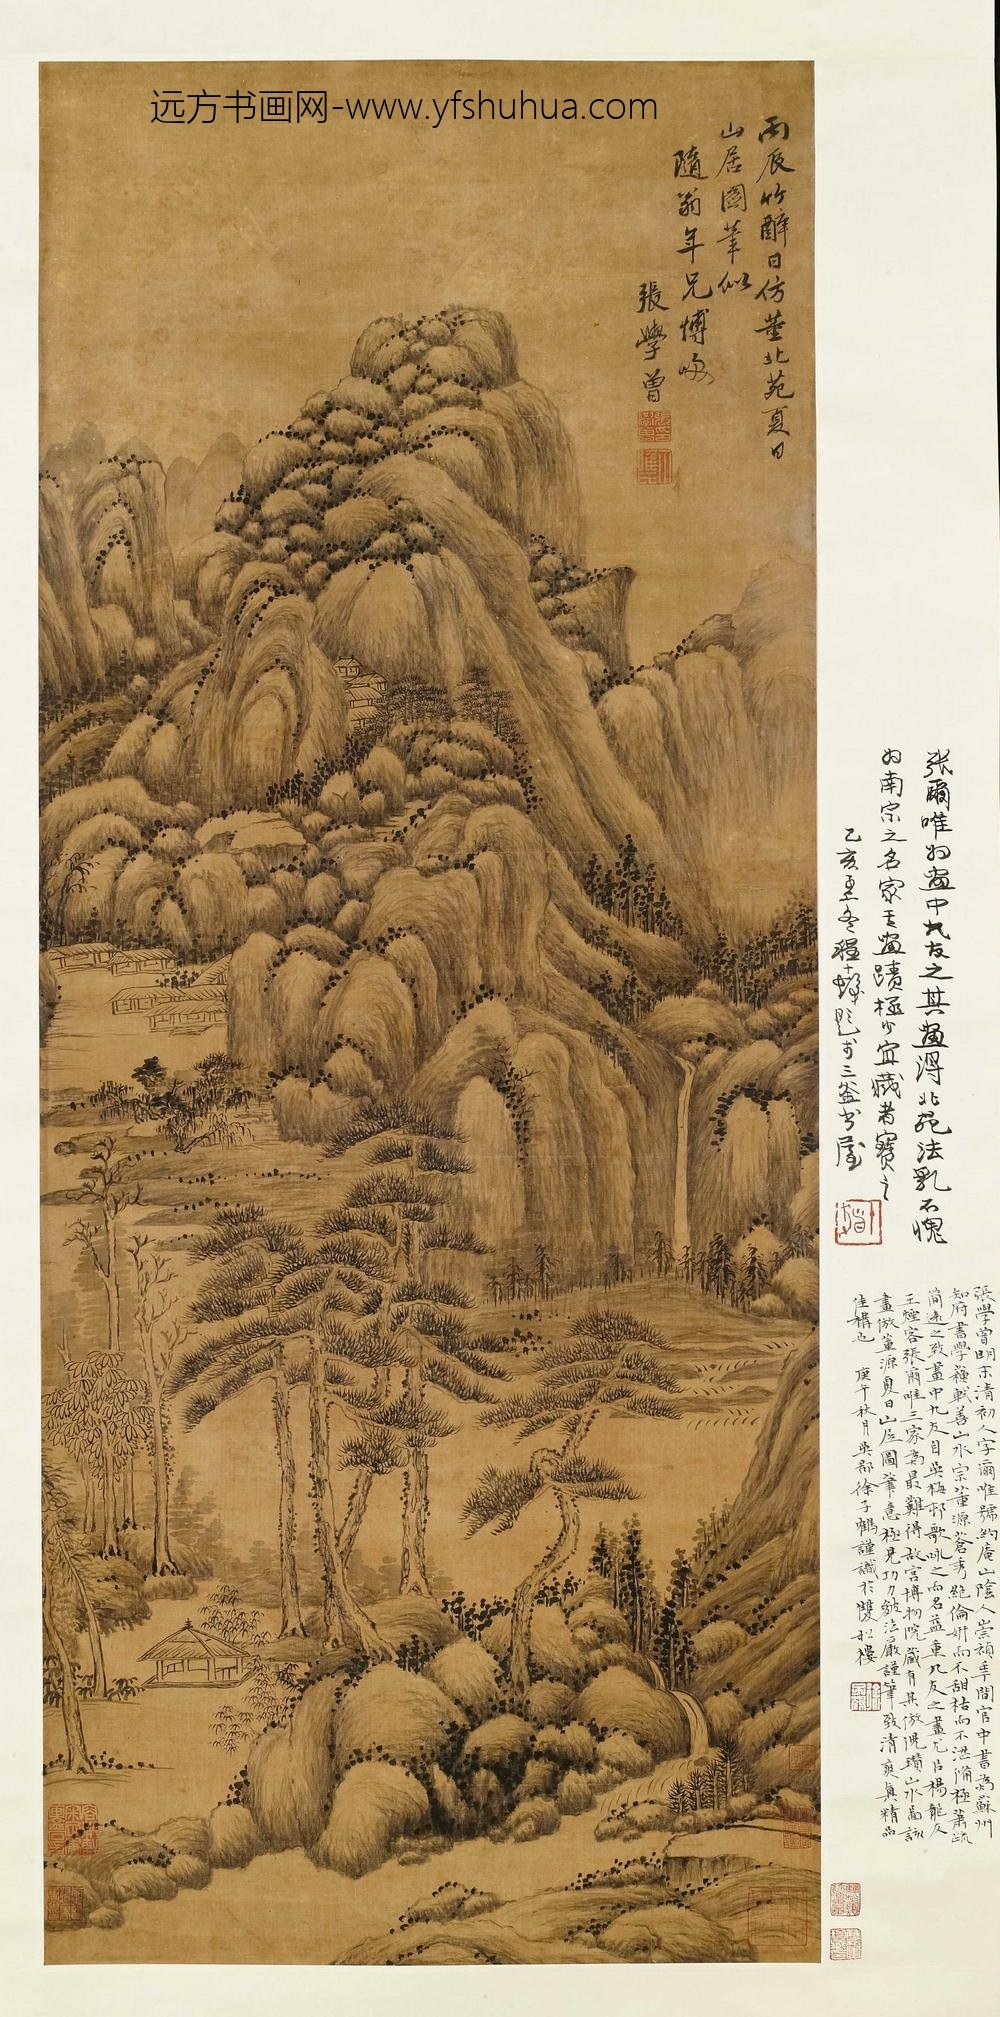 远方书画网-www.yfshuhua.com
丙辰竹醉日仿董北苑夏日
山居图笔似
随翁年兄博咲
張學曾
张爾唯为畫中九友之其畫得北苑法乳不愧
为南宗之名家其畫蹟極少宜藏者寶之
張學曾明末清初人字爾唯號約庵山陰人崇禎年間官中書為蘇州
知府書學蘇軾善山水宗董源蒼秀絕倫妍而不甜枯而不澀備極蕭疏
簡遠之致畫中九友自吳梅邨歌咏之而名益重九友之畫尤以楊龍友
王煙客張爾唯三家為最難得故宮博物院藏有其倣倪瓚山水圖該
畫倣董源夏日山居圖筆意極見功力皴法嚴謹筆致清爽真精品
佳構也 庚午秋月吳郡徐子鶴謹識於雙松樓